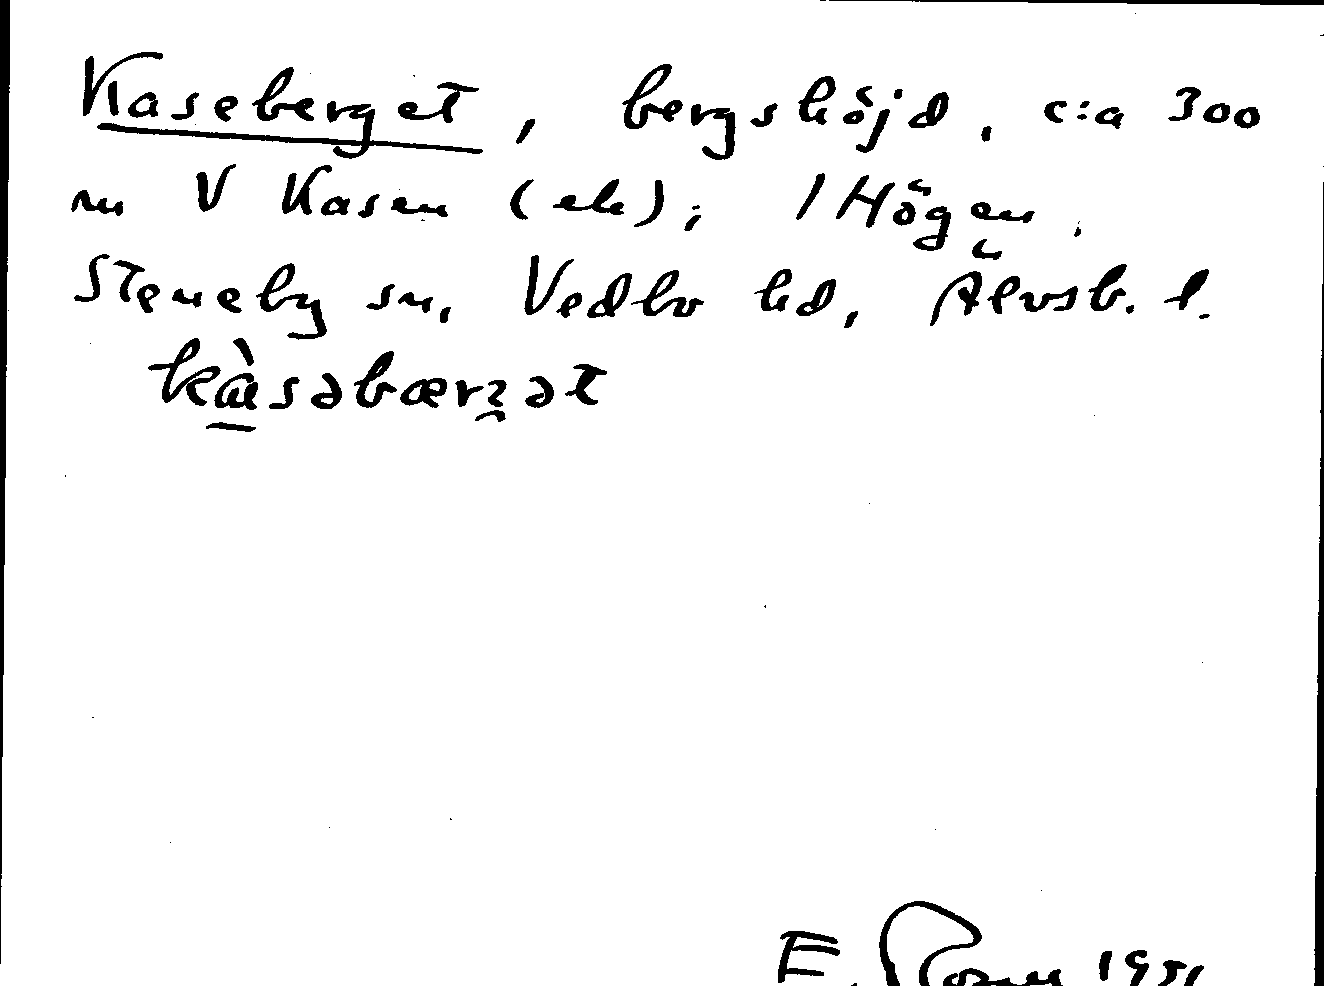 Kaseberget, bergshöjd, c:a 300
m V Kasen (ek); 1 Högen,
Steneby sn, Vedbo hd, Älvsb. l.
kàsəbærʒət
E. 1951